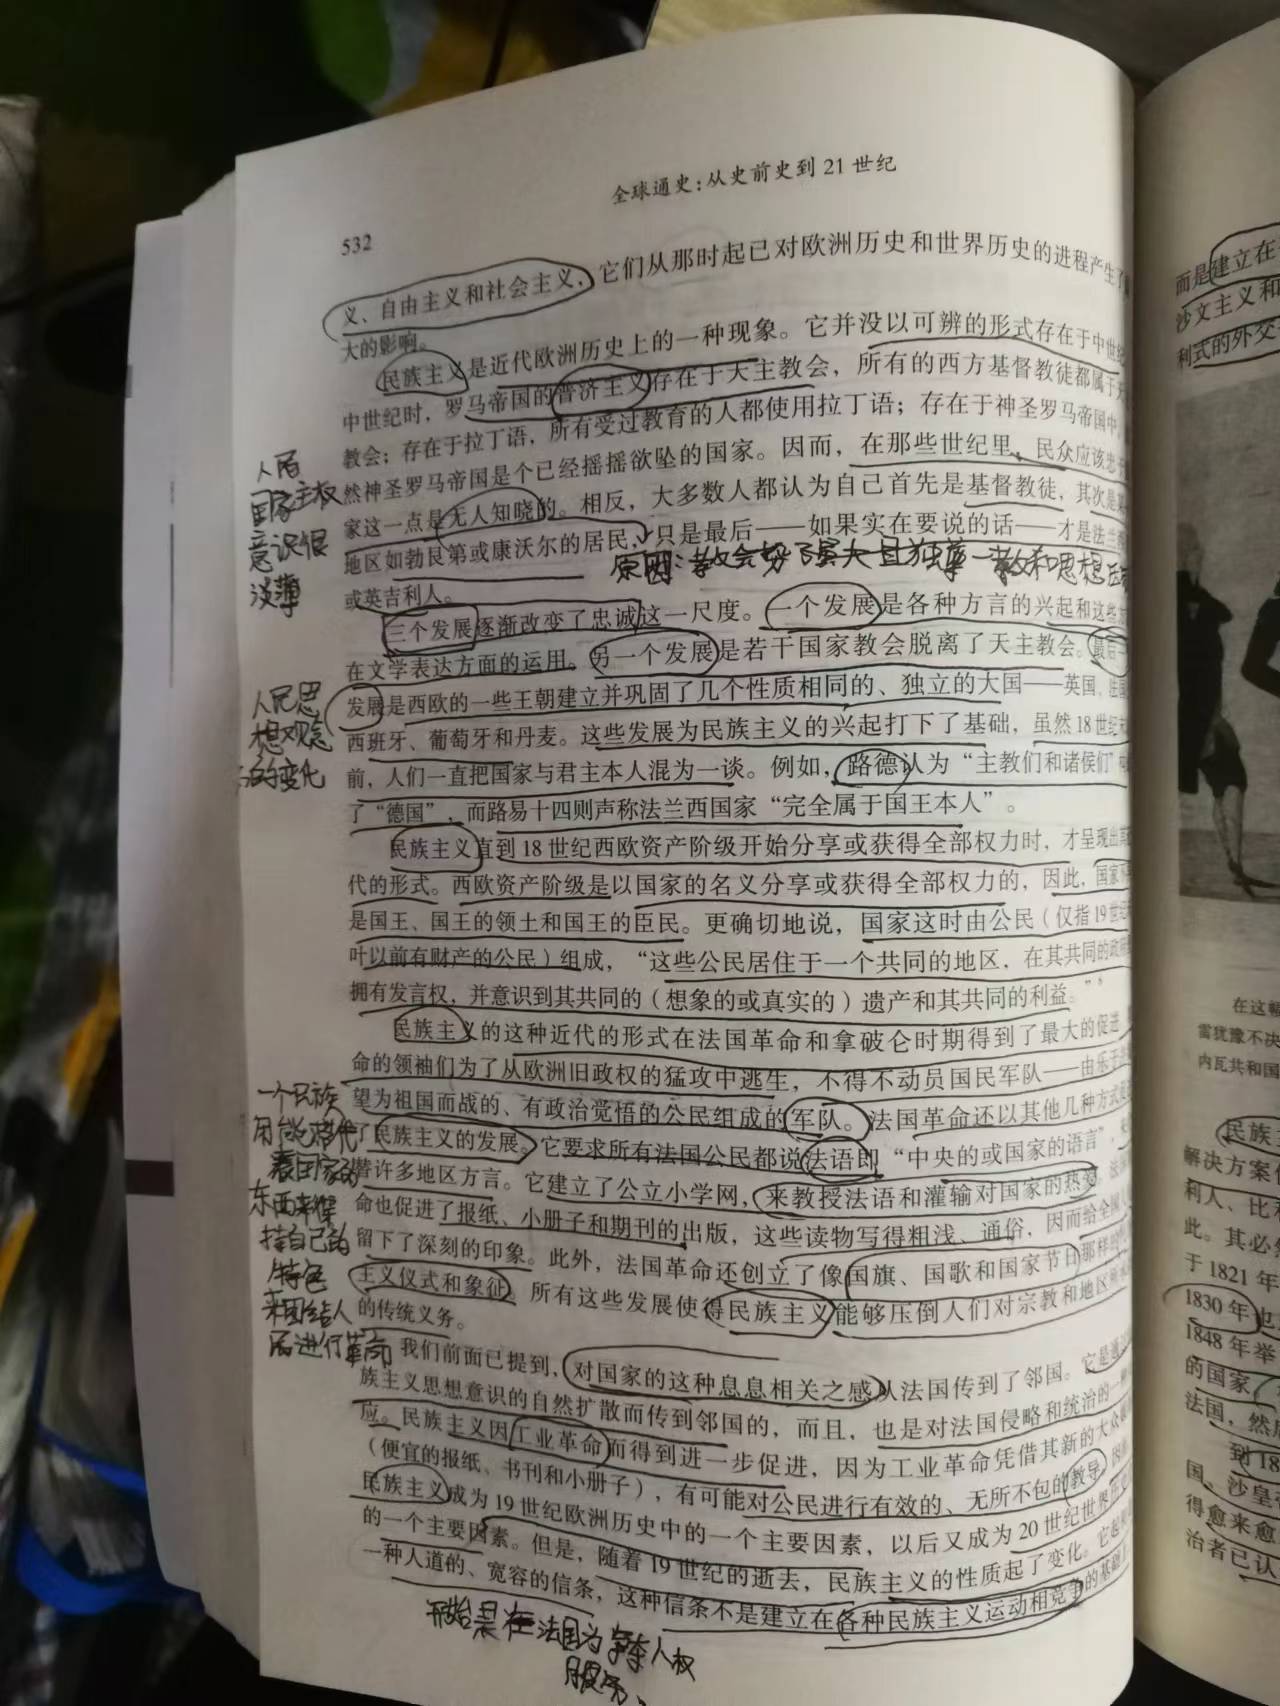 全球通史：从史前史到 21 世纪
532
义、自由主义和社会主义，它们从那时起已对欧洲历史和世界历史的进程产生了
大的影响。
民族主义是近代欧洲历史上的一种现象。它并没以可辨的形式存在于中世纪
中世纪时，罗马帝国的普济主义存在于天主教会，所有的西方基督教徒都属于
教会；存在于拉丁语，所有受过教育的人都使用拉丁语；存在于神圣罗马帝国中
然神圣罗马帝国是个已经摇摇欲坠的国家。因而，在那些世纪里，民众应该忠
家这一点是无人知晓的。相反，大多数人都认为自己首先是基督教徒，其次是
地区如勃艮第或康沃尔的居民，只是最后——如果实在要说的话——才是法兰
或英吉利人。
三个发展逐渐改变了忠诚这一尺度。一个发展是各种方言的兴起和这些
在文学表达方面的运用。另一个发展是若干国家教会脱离了天主教会。最后一
发展是西欧的一些王朝建立并巩固了几个性质相同的、独立的大国——英国、
西班牙、葡萄牙和丹麦。这些发展为民族主义的兴起打下了基础，虽然 18 世纪
前，人们一直把国家与君主本人混为一谈。例如，路德认为“主教们和诸侯们”
了“德国”，而路易十四则声称法兰西国家“完全属于国王本人”。
民族主义直到 18 世纪西欧资产阶级开始分享或获得全部权力时，才呈现出
代的形式。西欧资产阶级是以国家的名义分享或获得全部权力的，因此，国家
是国王、国王的领土和国王的臣民。更确切地说，国家这时由公民（仅指 19 世纪
叶以前有财产的公民）组成，“这些公民居住于一个共同的地区，在其共同的政
拥有发言权，并意识到其共同的（想象的或真实的）遗产和其共同的利益。”
民族主义的这种近代的形式在法国革命和拿破仑时期得到了最大的促进。
命的领袖们为了从欧洲旧政权的猛攻中逃生，不得不动员国民军队——由乐于
望为祖国而战的、有政治觉悟的公民组成的军队。法国革命还以其他几种方式
了民族主义的发展。它要求所有法国公民都说法语即“中央的或国家的语言”，
替许多地区方言。它建立了公立小学网，来教授法语和灌输对国家的热爱。法
命也促进了报纸、小册子和期刊的出版，这些读物写得粗浅、通俗，因而给全国
留下了深刻的印象。此外，法国革命还创立了像国旗、国歌和国家节日那样
主义仪式和象征。所有这些发展使得民族主义能够压倒人们对宗教和地区
的传统义务。
我们前面已提到，对国家的这种息息相关之感从法国传到了邻国。它是
族主义思想意识的自然扩散而传到邻国的，而且，也是对法国侵略和统治的一种
应。民族主义因工业革命而得到进一步促进，因为工业革命凭借其新的大众
（便宜的报纸、书刊和小册子），有可能对公民进行有效的、无所不包的教导。因
民族主义成为 19 世纪欧洲历史中的一个主要因素，以后又成为 20 世纪世界历史
的一个主要因素。但是，随着 19 世纪的逝去，民族主义的性质起了变化。它起
一种人道的、宽容的信条，这种信条不是建立在各种民族主义运动相竞争的基础
人民
国家主权
意识很
淡薄
原因：教会势力强大且独尊一教和思想
人民思
想观念
的变化
一个民族
用能够代
表国家的
东西来保
持自己的
特色
来团结人
民进行革命
开始是在法国为争夺人权
服务。
而是建立在
沙文主义和
利式的外交
在这幅
雷犹豫不决
内瓦共和国
民族
解决方案
利人、比利
此。其必
于 1821 年
1830 年也
1848 年举
的国家
法国，然后
到 18
国、沙皇
得愈来愈
治者已认